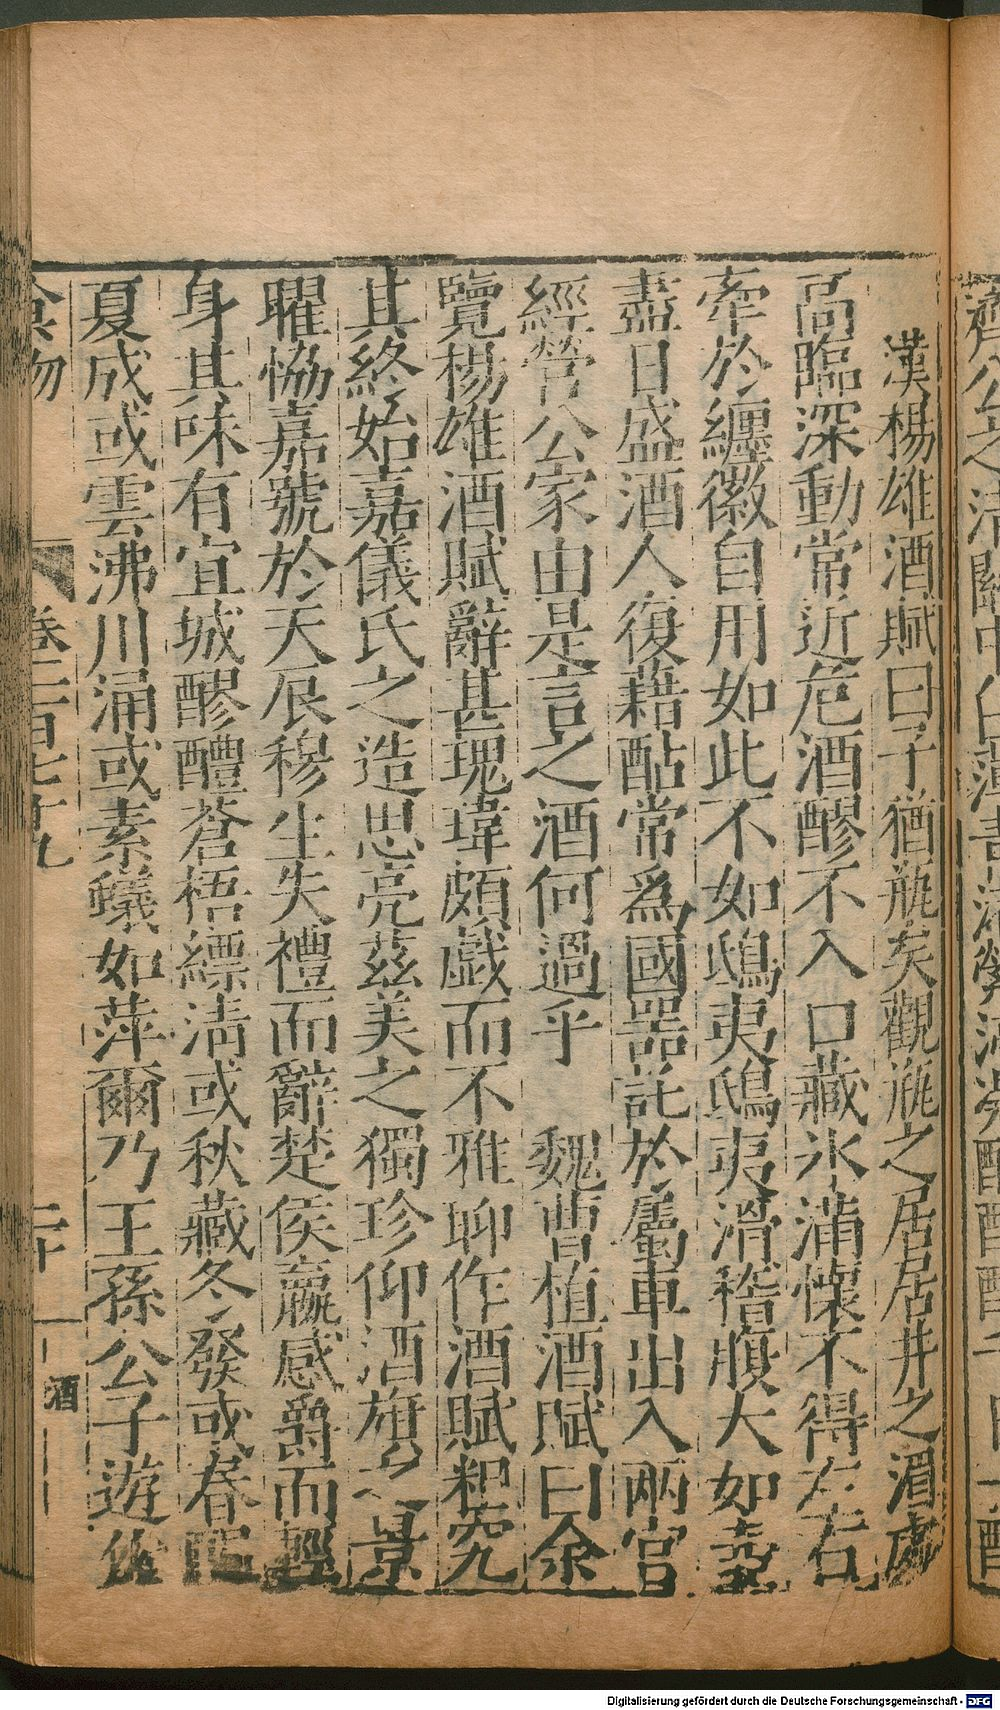 漢楊雄酒賦曰子猶瓶矣觀瓶之居居井之湄處
高臨深動常近危酒醪不入口藏水滿懷不得左右
牽於纏徽自用如此不如鴟夷鴟夷滑稽腹大如壺
盡日盛酒人復藉酤常爲國器託於屬車出入兩宮
經營公家由是言之酒何過乎 魏曹植酒賦曰余
覽楊雄酒賦辭甚瑰瑋頗戲而不雅聊作酒賦粗究
其終始嘉儀氏之造思亮茲美之獨珍仰酒旗之景
曜恊嘉號於天辰穆生失禮而辭楚侯嬴感爵而輕
身其味有宜城醪醴蒼梧縹清或秋藏冬發或春醞
夏成或雲沸川涌或素蟻如萍爾乃王孫公子遊
食物 卷三百七十九 二十 酒
Digitalisierung gefördert durch die Deutsche Forschungsgemeinschaft - DFG